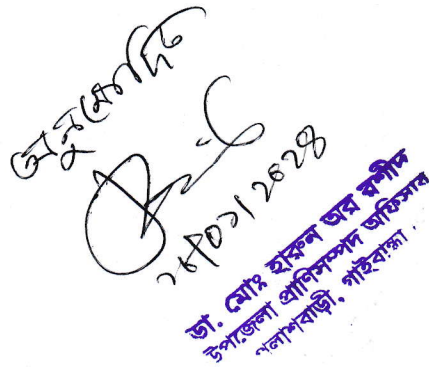 অনুমোদিত
ডা. মোঃ হারুন অর রশীদ
উপজেলা প্রাণিসম্পদ অফিসার
পলাশবাড়ী, গাইবান্ধা।